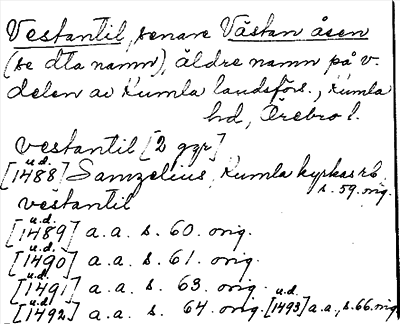 Vestantil, senare Västan åsen
(se dta namn), äldre namn på v.
delen av Kumla landsförs., Kumla
hd, Örebro l.
vestantil [2 ggr]
u.d.
[1488] Samzelius, Kumla kyrkas rb.
s. 59. orig.
vestantil
u.d.
[1489] a.a. s. 60. orig.
u.d.
[1490] a.a. s. 61. orig.
u.d.
[1491] a.a. s. 63. orig. u.d.
[1492] a.a. s. 64. orig. [1493] a.a., s. 66. orig